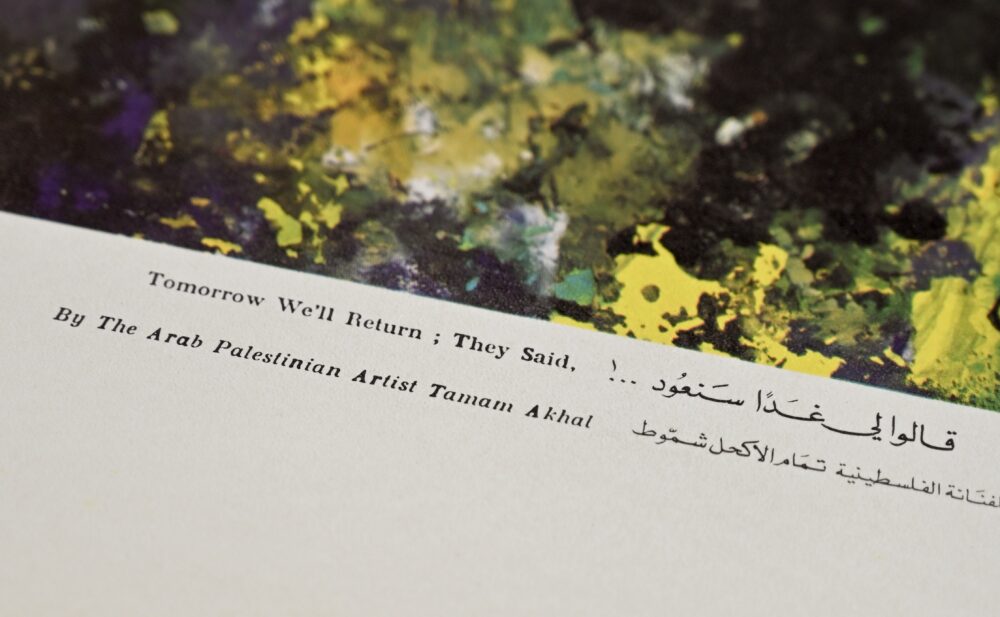 Tomorrow We'll Return ; They Said,
By The Arab Palestinian Artist Tamam Akhal
قالوا لي غَدًا سَنعُود ...!
الفنانة الفلسطينية تمَام الأكحل شمّوط